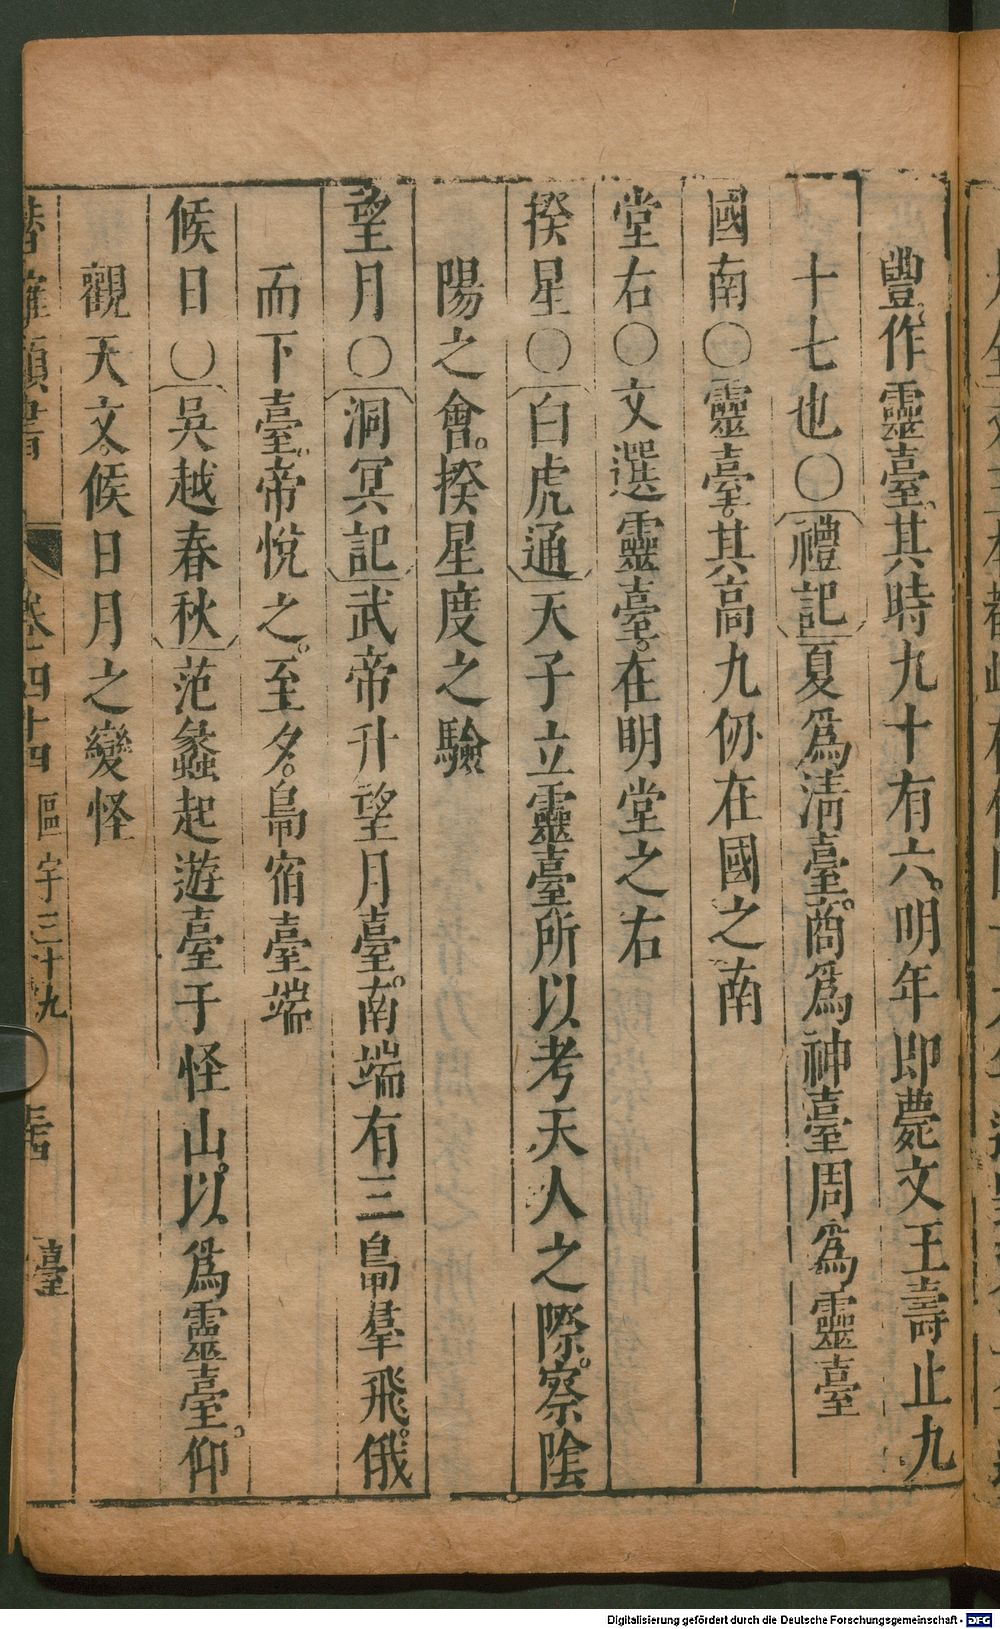 豐作靈臺其時九十有六明年即薨文王壽止九
十七也○禮記夏爲清臺商爲神臺周爲靈臺
國南○靈臺其高九仞在國之南
堂右○文選靈臺在明堂之右
揆星○白虎通天子立靈臺所以考天人之際察陰
陽之會揆星度之驗
望月○洞冥記武帝升望月臺南端有三鳥羣飛俄
而下臺帝悅之至夕鳥宿臺端
候日○吳越春秋范蠡起遊臺于怪山以爲靈臺仰
觀天文候日月之變怪
潛確類書 卷四十四 區宇三十九 臺
Digitalisierung gefördert durch die Deutsche Forschungsgemeinschaft - DFG